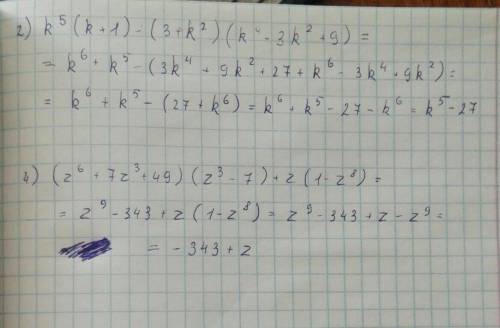 2) k⁵(k+1)-(3+k²)(k⁴-3k²+9)=
= k⁶+k⁵-(3k⁴+9k²+27+k⁶-3k⁴+9k²)=
= k⁶+k⁵-(27+k⁶)=k⁶+k⁵-27-k⁶=k⁵-27
4) (z⁶+7z³+49)(z³-7)+z(1-z⁸)=
= z⁹-343+z(1-z⁸)=z⁹-343+z-z⁹=
= -343+z